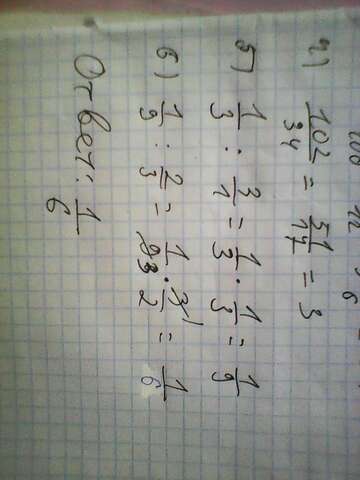 4) 102/34 = 51/17 = 3
5) 1/3 : 3/1 = 1/3 · 1/3 = 1/9
6) 1/9 : 2/3 = 1/9 3 · 3 1/2 = 1/6
Ответ: 1/6